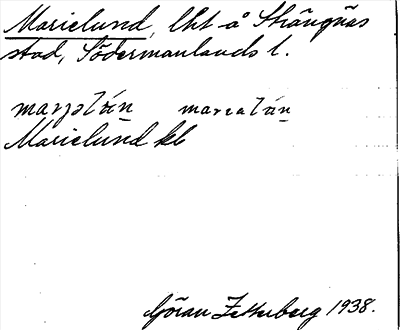 Marielund, lht å Strängnäs
stad, Södermanlands l.
Marielund kl
Göran Zetterberg 1938.